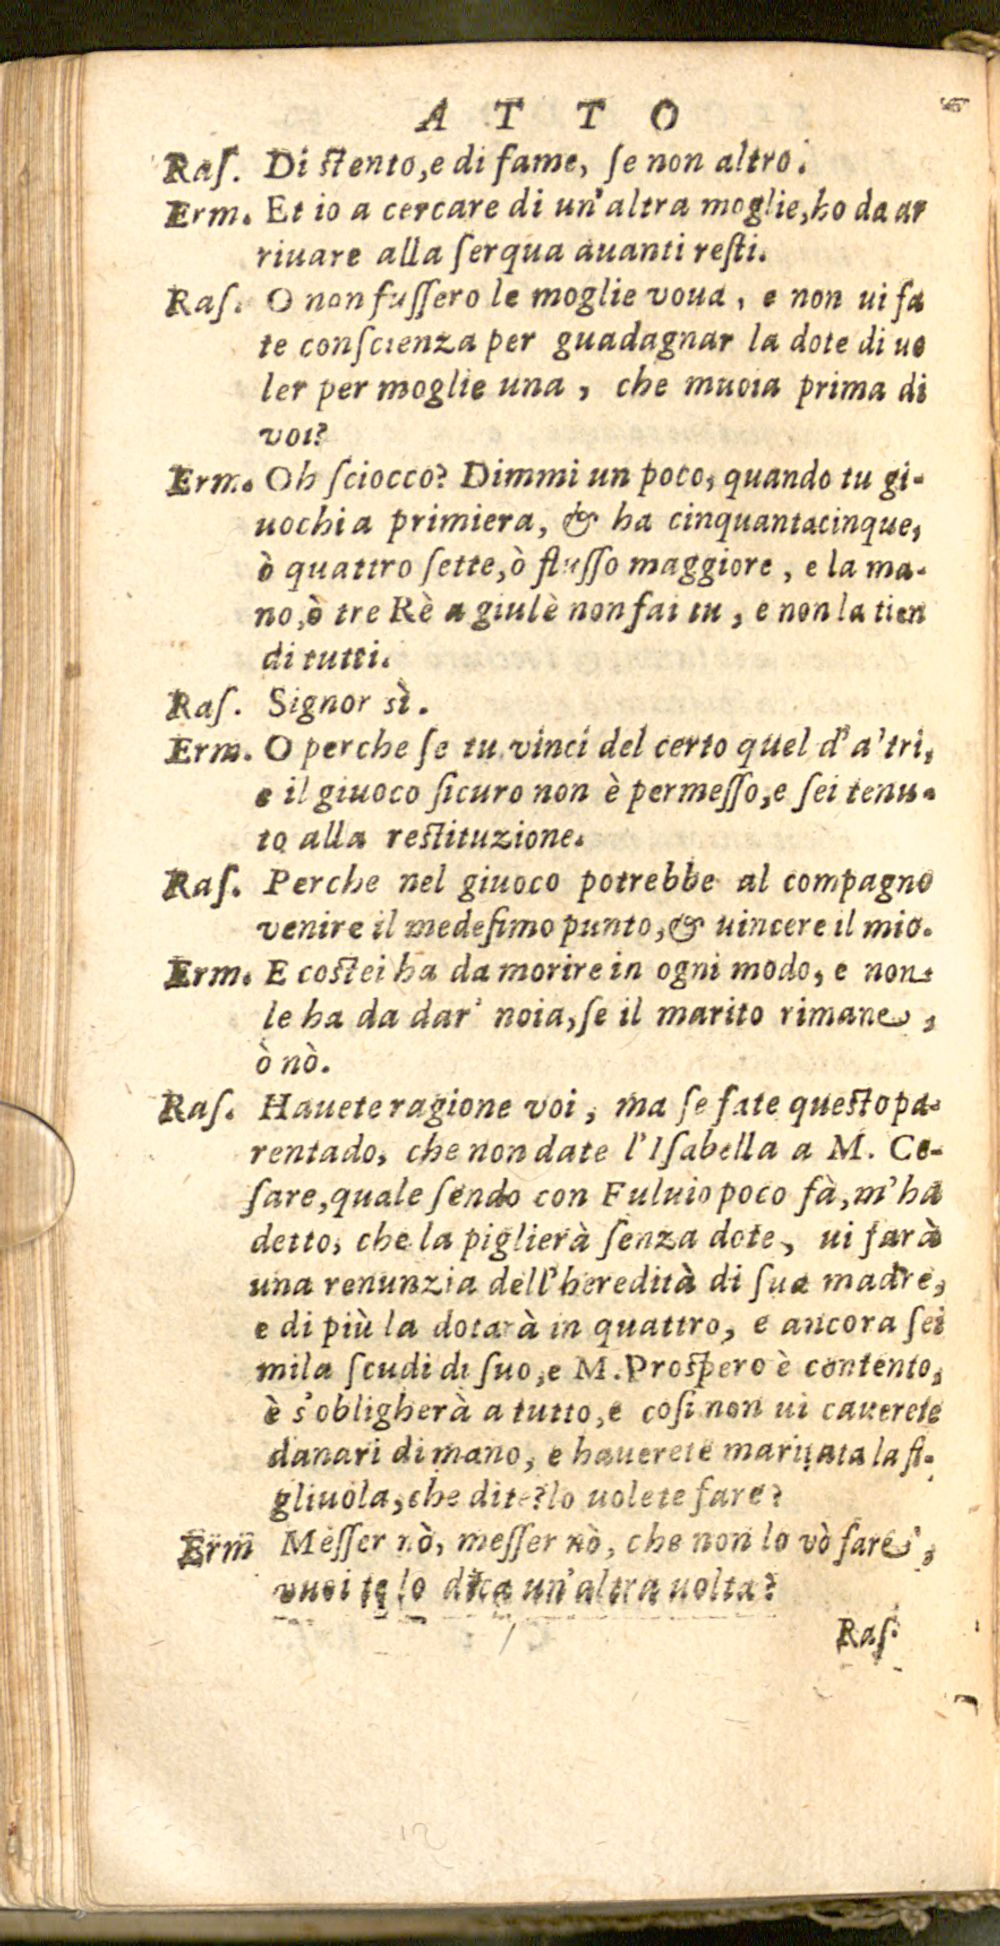 ATTO
Raſ. Di stento, e di fame, ſe non altro.
Erm. Et io a cercare di un'altra moglie, ho da ar
riuare alla ſerqua auanti reſti.
Raſ. O non fuſſero le moglie voua, e non ui fa
te conſcienza per guadagnar la dote di uo
ler per moglie una, che muoia prima di
voi?
Erm. Oh ſciocco? Dimmi un poco, quando tu gi-
uochi a primiera, & ha cinquantacinque,
ò quattro ſette, ò fluſſo maggiore, e la ma-
no, ò tre Rè a giulè non fai tu, e non la tien
di tutti.
Raſ. Signor sì.
Erm. O perche ſe tu vinci del certo quel d'a'tri,
e il giuoco ſicuro non è permeſſo, e ſei tenu-
to alla restituzione.
Raſ. Perche nel giuoco potrebbe al compagno
venire il medeſimo punto, & uincere il mio.
Erm. E costei ha da morire in ogni modo, e non
le ha da dar' noia, ſe il marito rimane,
ò nò.
Raſ. Hauete ragione voi, ma ſe fate questo pa-
rentado, che non date l'Iſabella a M. Ce-
ſare, quale ſendo con Fuluio poco fà, m'ha
detto, che la piglierà ſenza dote, ui farà
una renunzia dell'heredità di ſua madre,
e di più la dotarà in quattro, e ancora ſei
mila ſcudi di ſuo, e M. Proſpero è contento,
è s'obligherà a tutto, e coſi non ui cauerete
danari di mano, e hauerete maritata la fi-
gliuola, che dite? lo uolete fare?
Erm Meſſer nò, meſſer nò, che non lo vò fare,
vuoi te lo dica un'altra uolta?
Raſ.